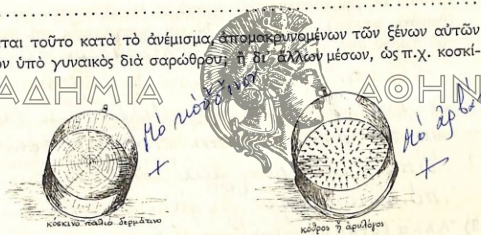 ται τοῦτο κατὰ τὸ ἀνέμισμα, ἀπομακρυνομένων τῶν ξένων αὐτῶν
ὑπὸ γυναικὸς διὰ σαρώθρου, ἢ δι' ἄλλων μέσων, ὡς π.χ. κοσκί-
ΑΔΗΜΙΑ ΑΘΗΝ
Μὸ
Μὸ
κόσκινο παλιὸ δερμάτινο
κόθρος ἢ ἀριλόγος